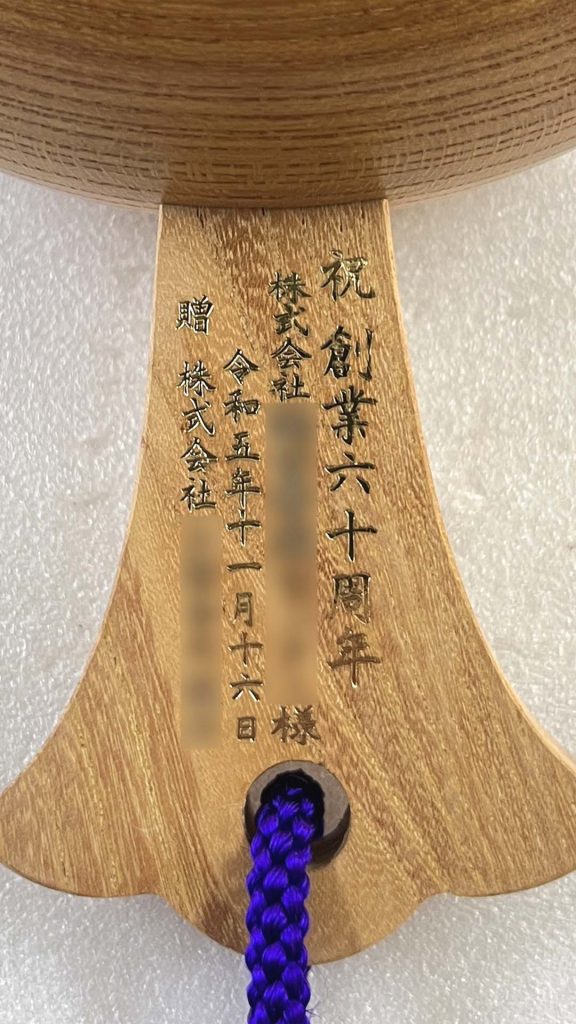 祝 創業六十周年
株式会社 様
令和五年十一月十六日
贈 株式会社